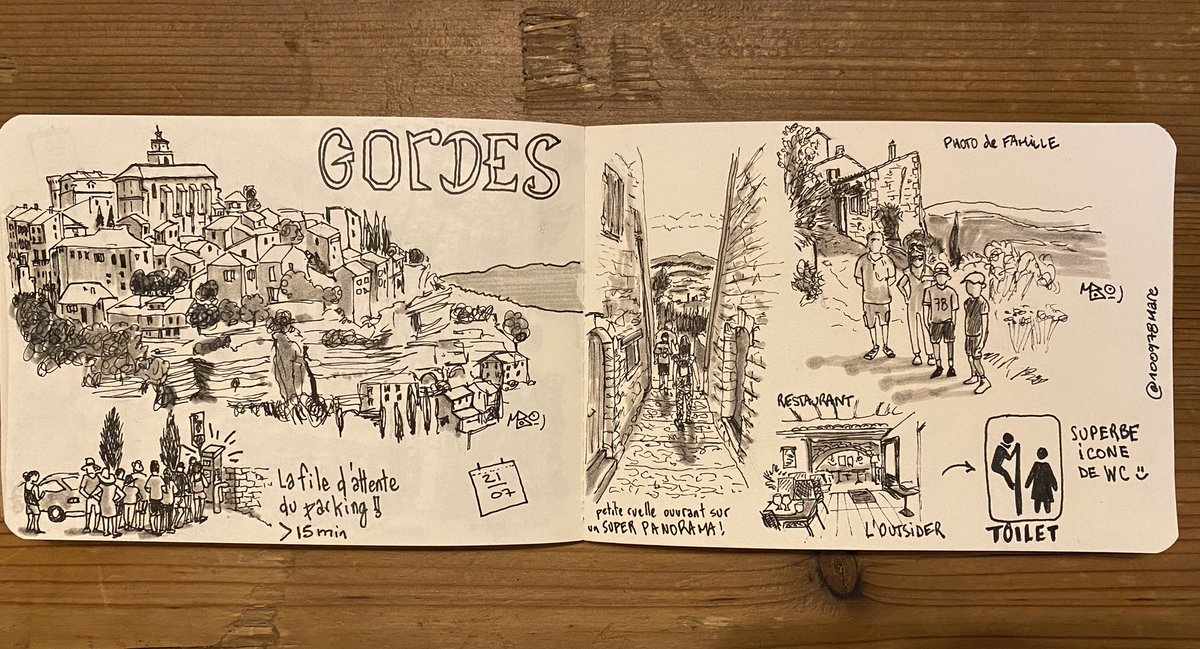 GORDES
La file d'attente
du parking !!
>15 min
21
07
petite ruelle ouvrant sur
un SUPER PANORAMA !
PHOTO de FAMILLE
78
@100978Marc
RESTAURANT
L'OUTSIDER
TOILET
SUPERBE
ICONE
DE WC